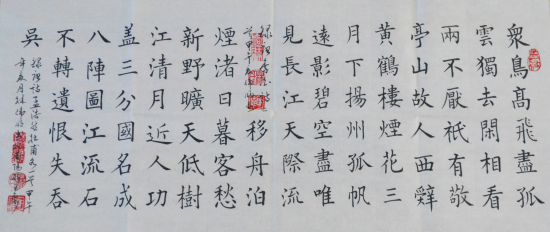 衆鳥高飛盡孤
雲獨去閑相看
兩不厭祇有敬
亭山故人西辤
黃鶴樓煙花三
月下揚州孤帆
遠影碧空盡唯
見長江天際流
移舟泊
煙渚日暮客愁
新野曠天低樹
江清月近人功
蓋三分國名成
八陣圖江流石
不轉遺恨失吞
吳
孟浩然杜甫
甲午
年五月